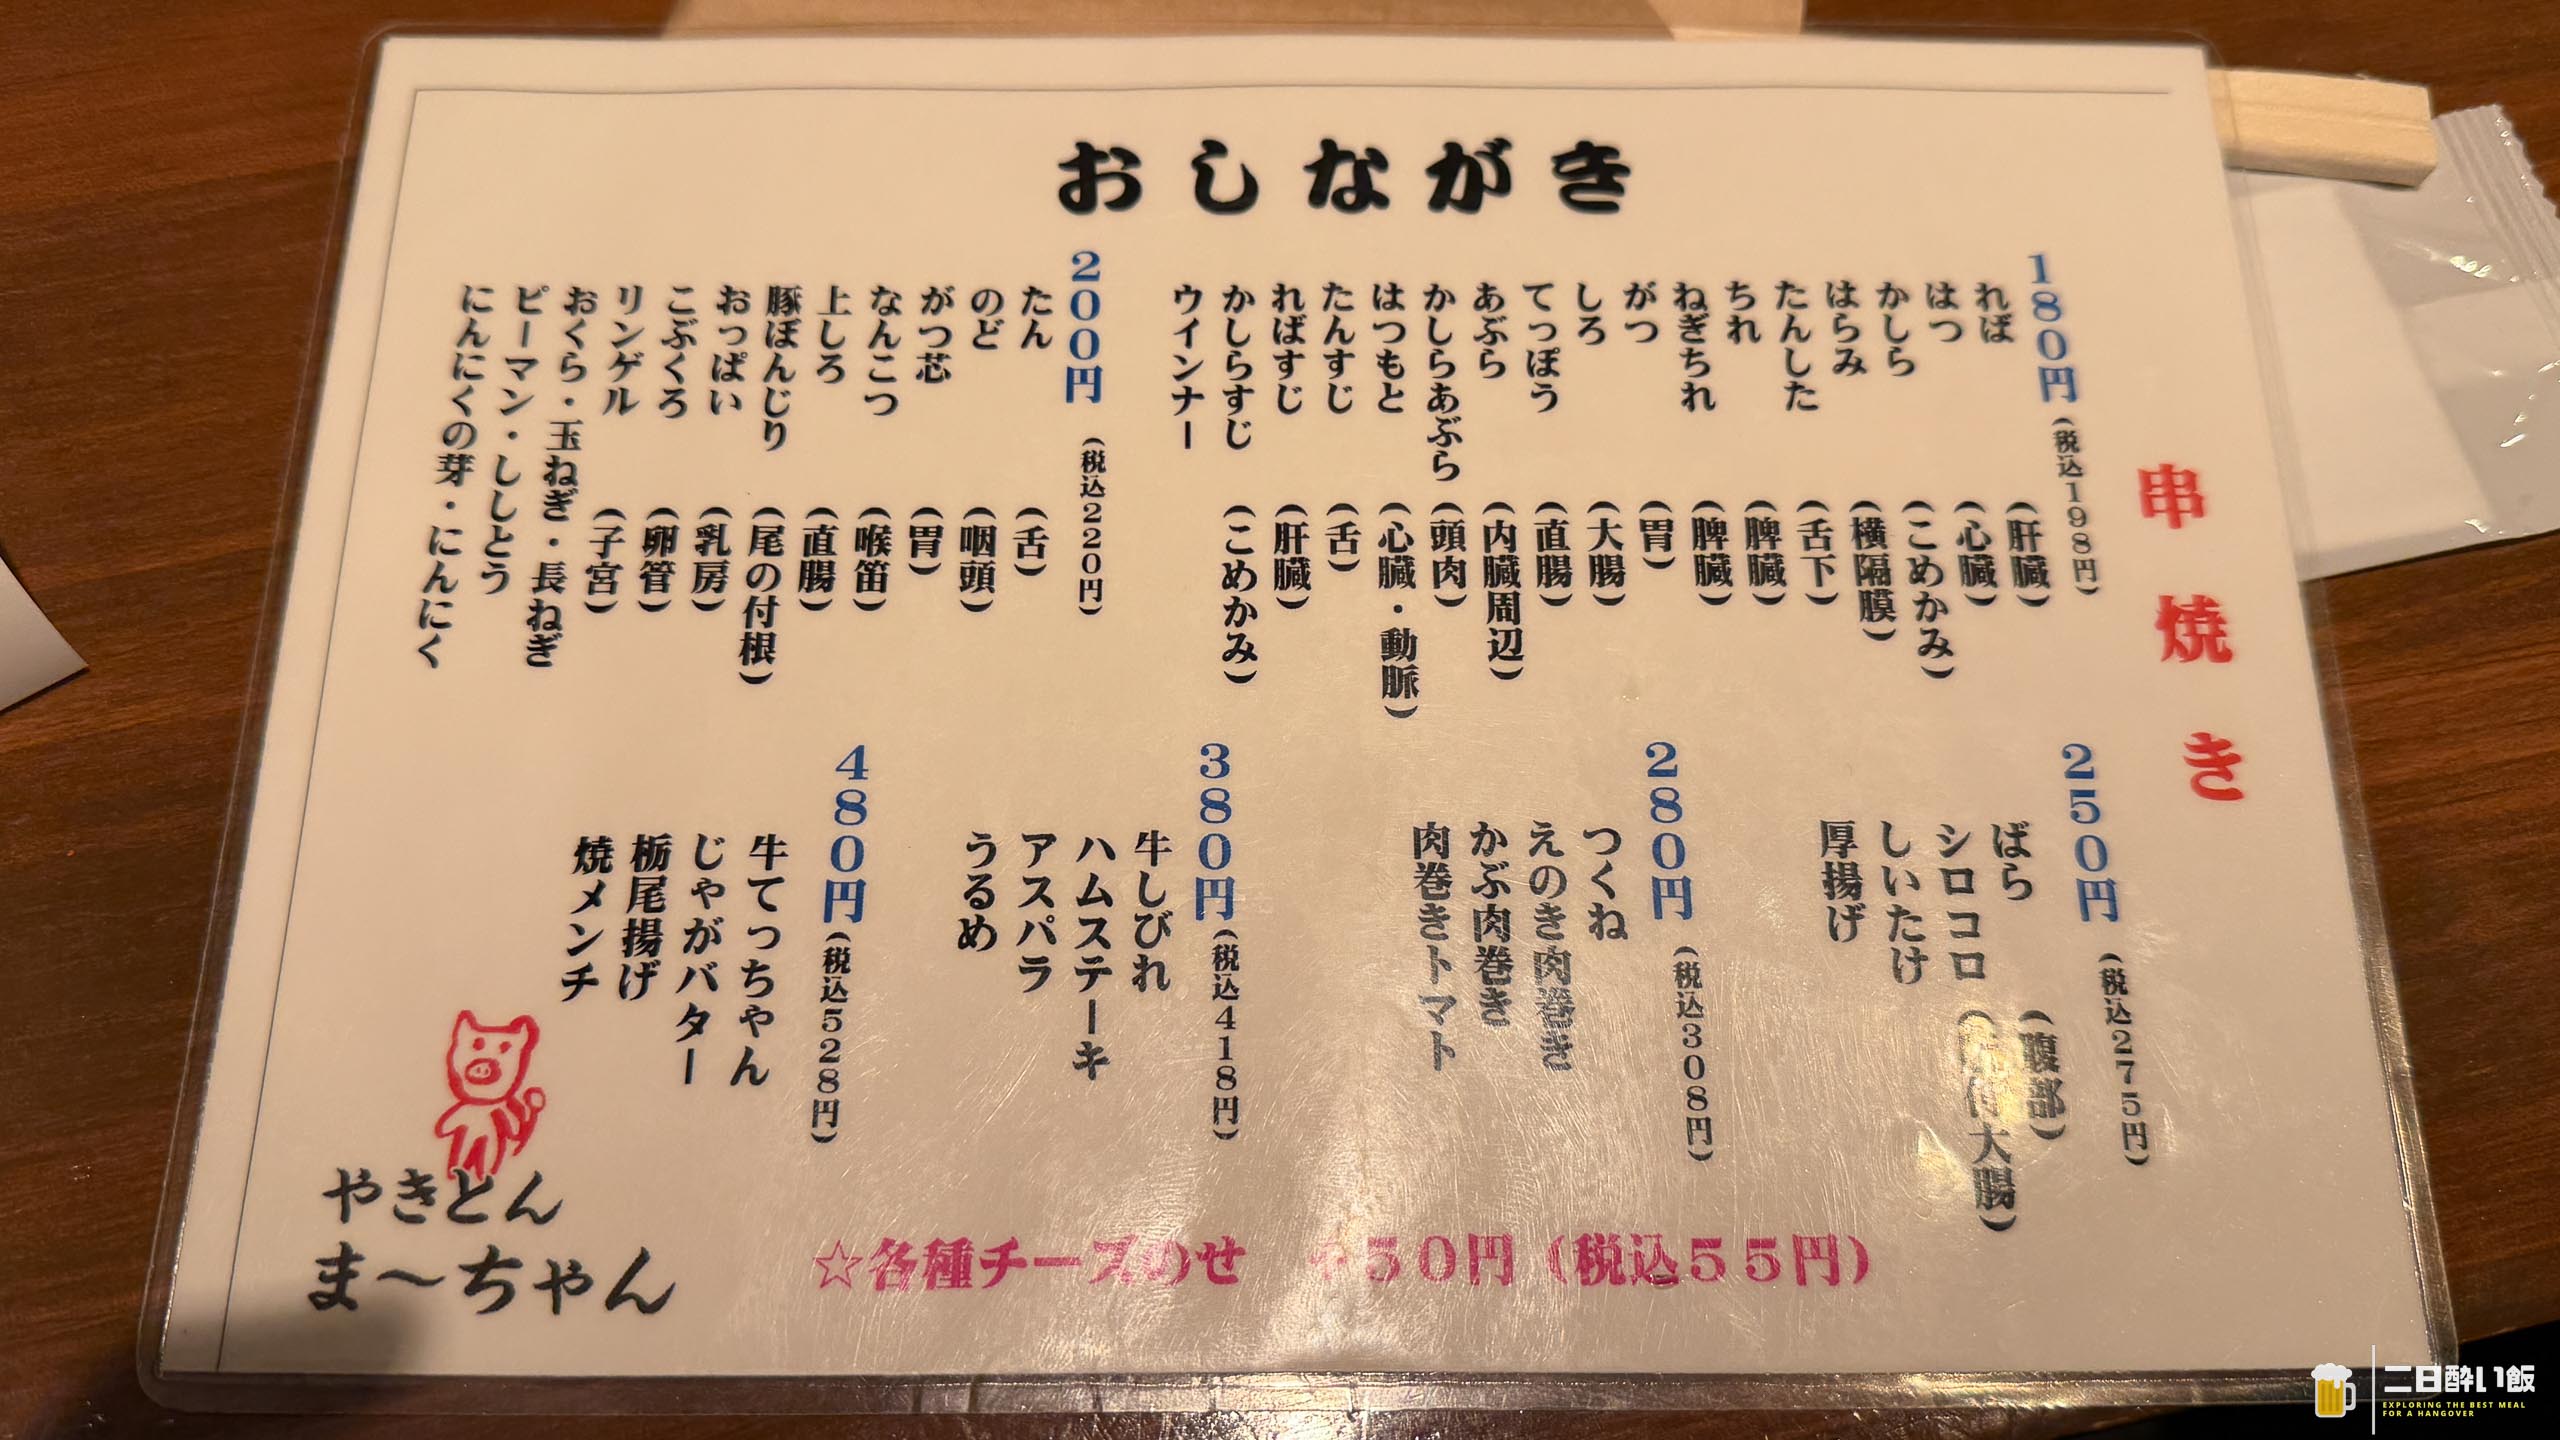 おしながき
串焼き
180円(税込198円)
れば(肝臓)
はつ(心臓)
かしら(こめかみ)
はらみ(横隔膜)
たんした(舌下)
ちれ(脾臓)
ねぎちれ(脾臓)
がつ(胃)
しろ(大腸)
てっぽう(直腸)
あぶら(内臓周辺)
かしらあぶら(頭肉)
はつもと(心臓・動脈)
たんすじ(舌)
ればすじ(肝臓)
かしらすじ(こめかみ)
ウインナー
200円(税込220円)
たん(舌)
のど(咽頭)
がつ芯(胃)
なんこつ(喉笛)
上しろ(直腸)
豚ぼんじり(尾の付根)
おっぱい(乳房)
こぶくろ(卵管)
リンゲル(子宮)
おくら・玉ねぎ・長ねぎ
ピーマン・ししとう
にんにくの芽・にんにく
250円(税込275円)
ばら(腹部)
シロコロ(脂付大腸)
しいたけ
厚揚げ
280円(税込308円)
つくね
えのき肉巻き
かぶ肉巻き
肉巻きトマト
380円(税込418円)
牛しびれ
ハムステーキ
アスパラ
うるめ
480円(税込528円)
牛てっちゃん
じゃがバター
栃尾揚げ
焼メンチ
☆各種チーズのせ +50円(税込55円)
やきとん
ま〜ちゃん
二日酔い飯
EXPLORING THE BEST MEAL
FOR A HANGOVER